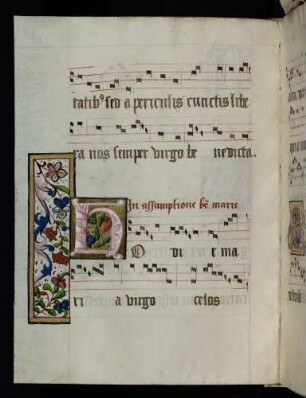 tatibꝰ sed a periculis cunctis libe
ra nos semper virgo be nedicta.
In assumptione bẽ marie
H O di e ma
ri a virgo celos